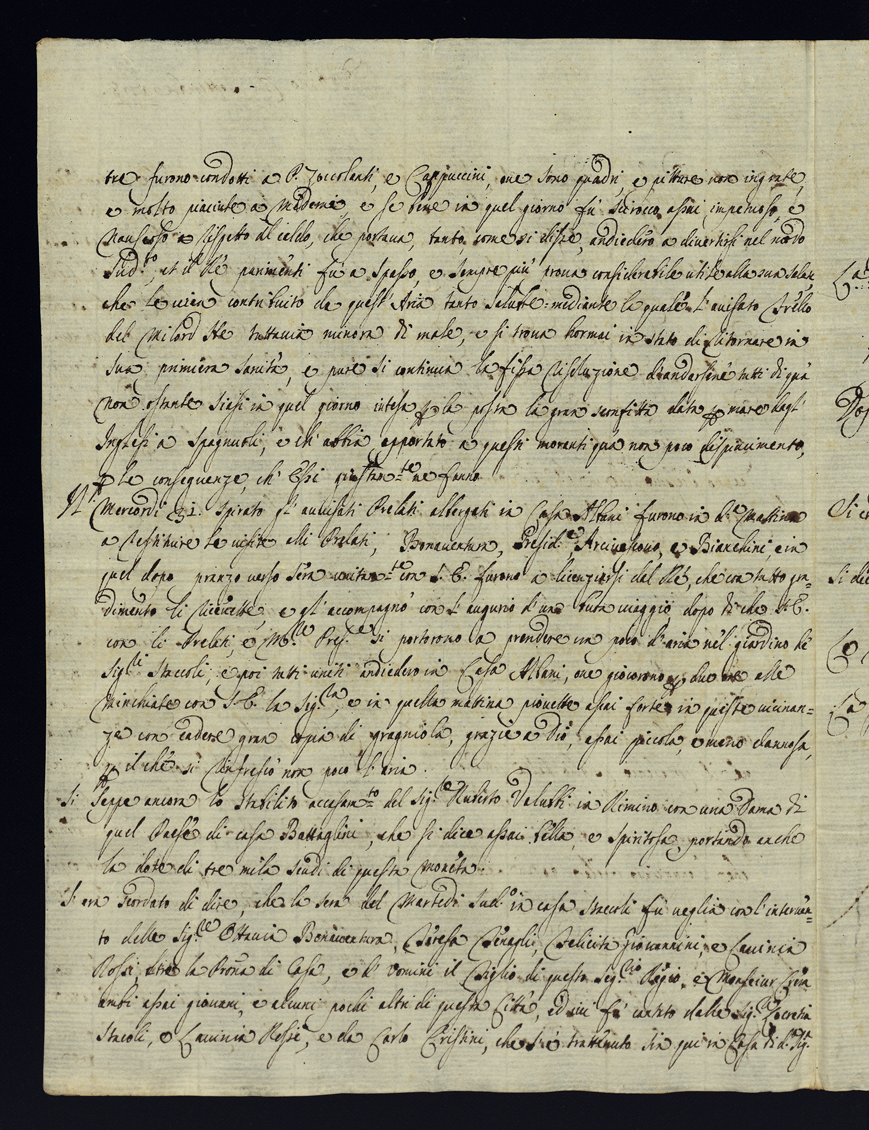 tre furono condotti a P. Zoccolanti, e Cappuccini, ove sono quadri, e pitture non ingrate,
e molto piaciute a Madama e se bene in quel giorno fù Scirocco assai impetuoso, e
Nauseoso a rispetto del caldo, che portava, tanto, come si disse, andiedero a divertirsi nel modo
Sud.to, et il Rè parimenti fù a spasso, e sempre più prova considerabile utile alla sua salute
che le vien contribuito da quest'Aria tanto salubre mediante la quale l'avisato
del Milord Ha tuttavia minora di male, e si trova hormai in stato di ritornare in
sua primiera sanità, e pure si continua la fissa risoluzione d'andarsene tutti di quà
non ostante siasi in quel giorno intesa p la posta la gran sconfitta data p mare dagl'
Inglesi a Spagnuoli, e ch'abbia apportato a questi moranti qua non poco dispiacimento,
p le conseguenze, ch'Essi giustam.te ne fanno
Mercordì 31. spirato gl'avisati Prelati albergati in Casa Albani furono in d.a Mattina
a restituire le visite alli Prelati, Bonaventura, Presid.e, Arcivescovo, e Bianchini, e in
quel dopo pranzo verso sera unitam.te con S. E. furono a licenziarsi dal Rè, che con tutto gra-
dimento li ricevette, e gl'accompagnò con l'augurio d'un buon viaggio dopo di che S. E.
con li Prelati, e M.r Pres.e si portorono a prendere un poco d'aria nel giardino de
Sig.ri Staccoli, e poi tutti uniti andiedero in Casa Albani, ove giocorono p due ore alle
Minchiate con S. E. la Sig.ra, e in quella mattina piovette assai forte in queste vicinan-
ze con cadere gran copia di gragniola, grazie a Dio, assai piccola, e meno dannosa,
p il chè si rinfrescò non poco l'aria.
Si seppe ancora lo stabilito accasam.to del Sig.re in Rimino con una Dama di
quel Paese di casa Battaglini, che si dice assai bella e spiritosa, portando anche
la dote di tre mila scudi di questa moneta.
S'era scordato di dire, che la sera del Martedì sud.o in casa Staccoli fù veglia con l'interven-
to delle Sig.re Ottavia Bonaventura, Teresa, Felicita Giovannini, e Lavinia
Rossi, oltre la Prona di Casa, e d'uomini il Figlio di questo Sig.re, e Monsieur
assai giovani, e alcuni pochi altri di questa Città, ed ivi fù cantato dalle Sig.re Lucrezia
Staccoli, e Lavinia Rossi, e da Carlo Cristini, che s'è trattenuto sin qui in Casa di d. Sig.